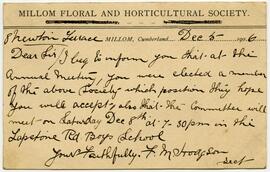 MILLOM FLORAL AND HORTICULTURAL SOCIETY.
8 Newton Terrace MILLOM, Cumberland. Dec 5 1906
Dear Sir I beg to inform you that at the
Annual Meeting you were elected a member
of the above Society which position they hope
you will accept, also that the Committee will
meet on Saturday Dec 8th at 7-30 pm in the
Lapstone Rd Boys School
Yours Faithfully. F. M Hodgson
Sect